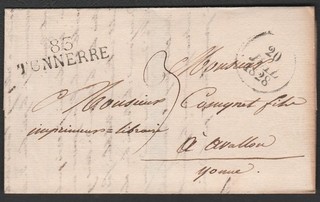 83
TONNERRE
20
1828
Monsieur
Monsieur Comynet fils
imprimeur = libraire
à avallon
yonne.